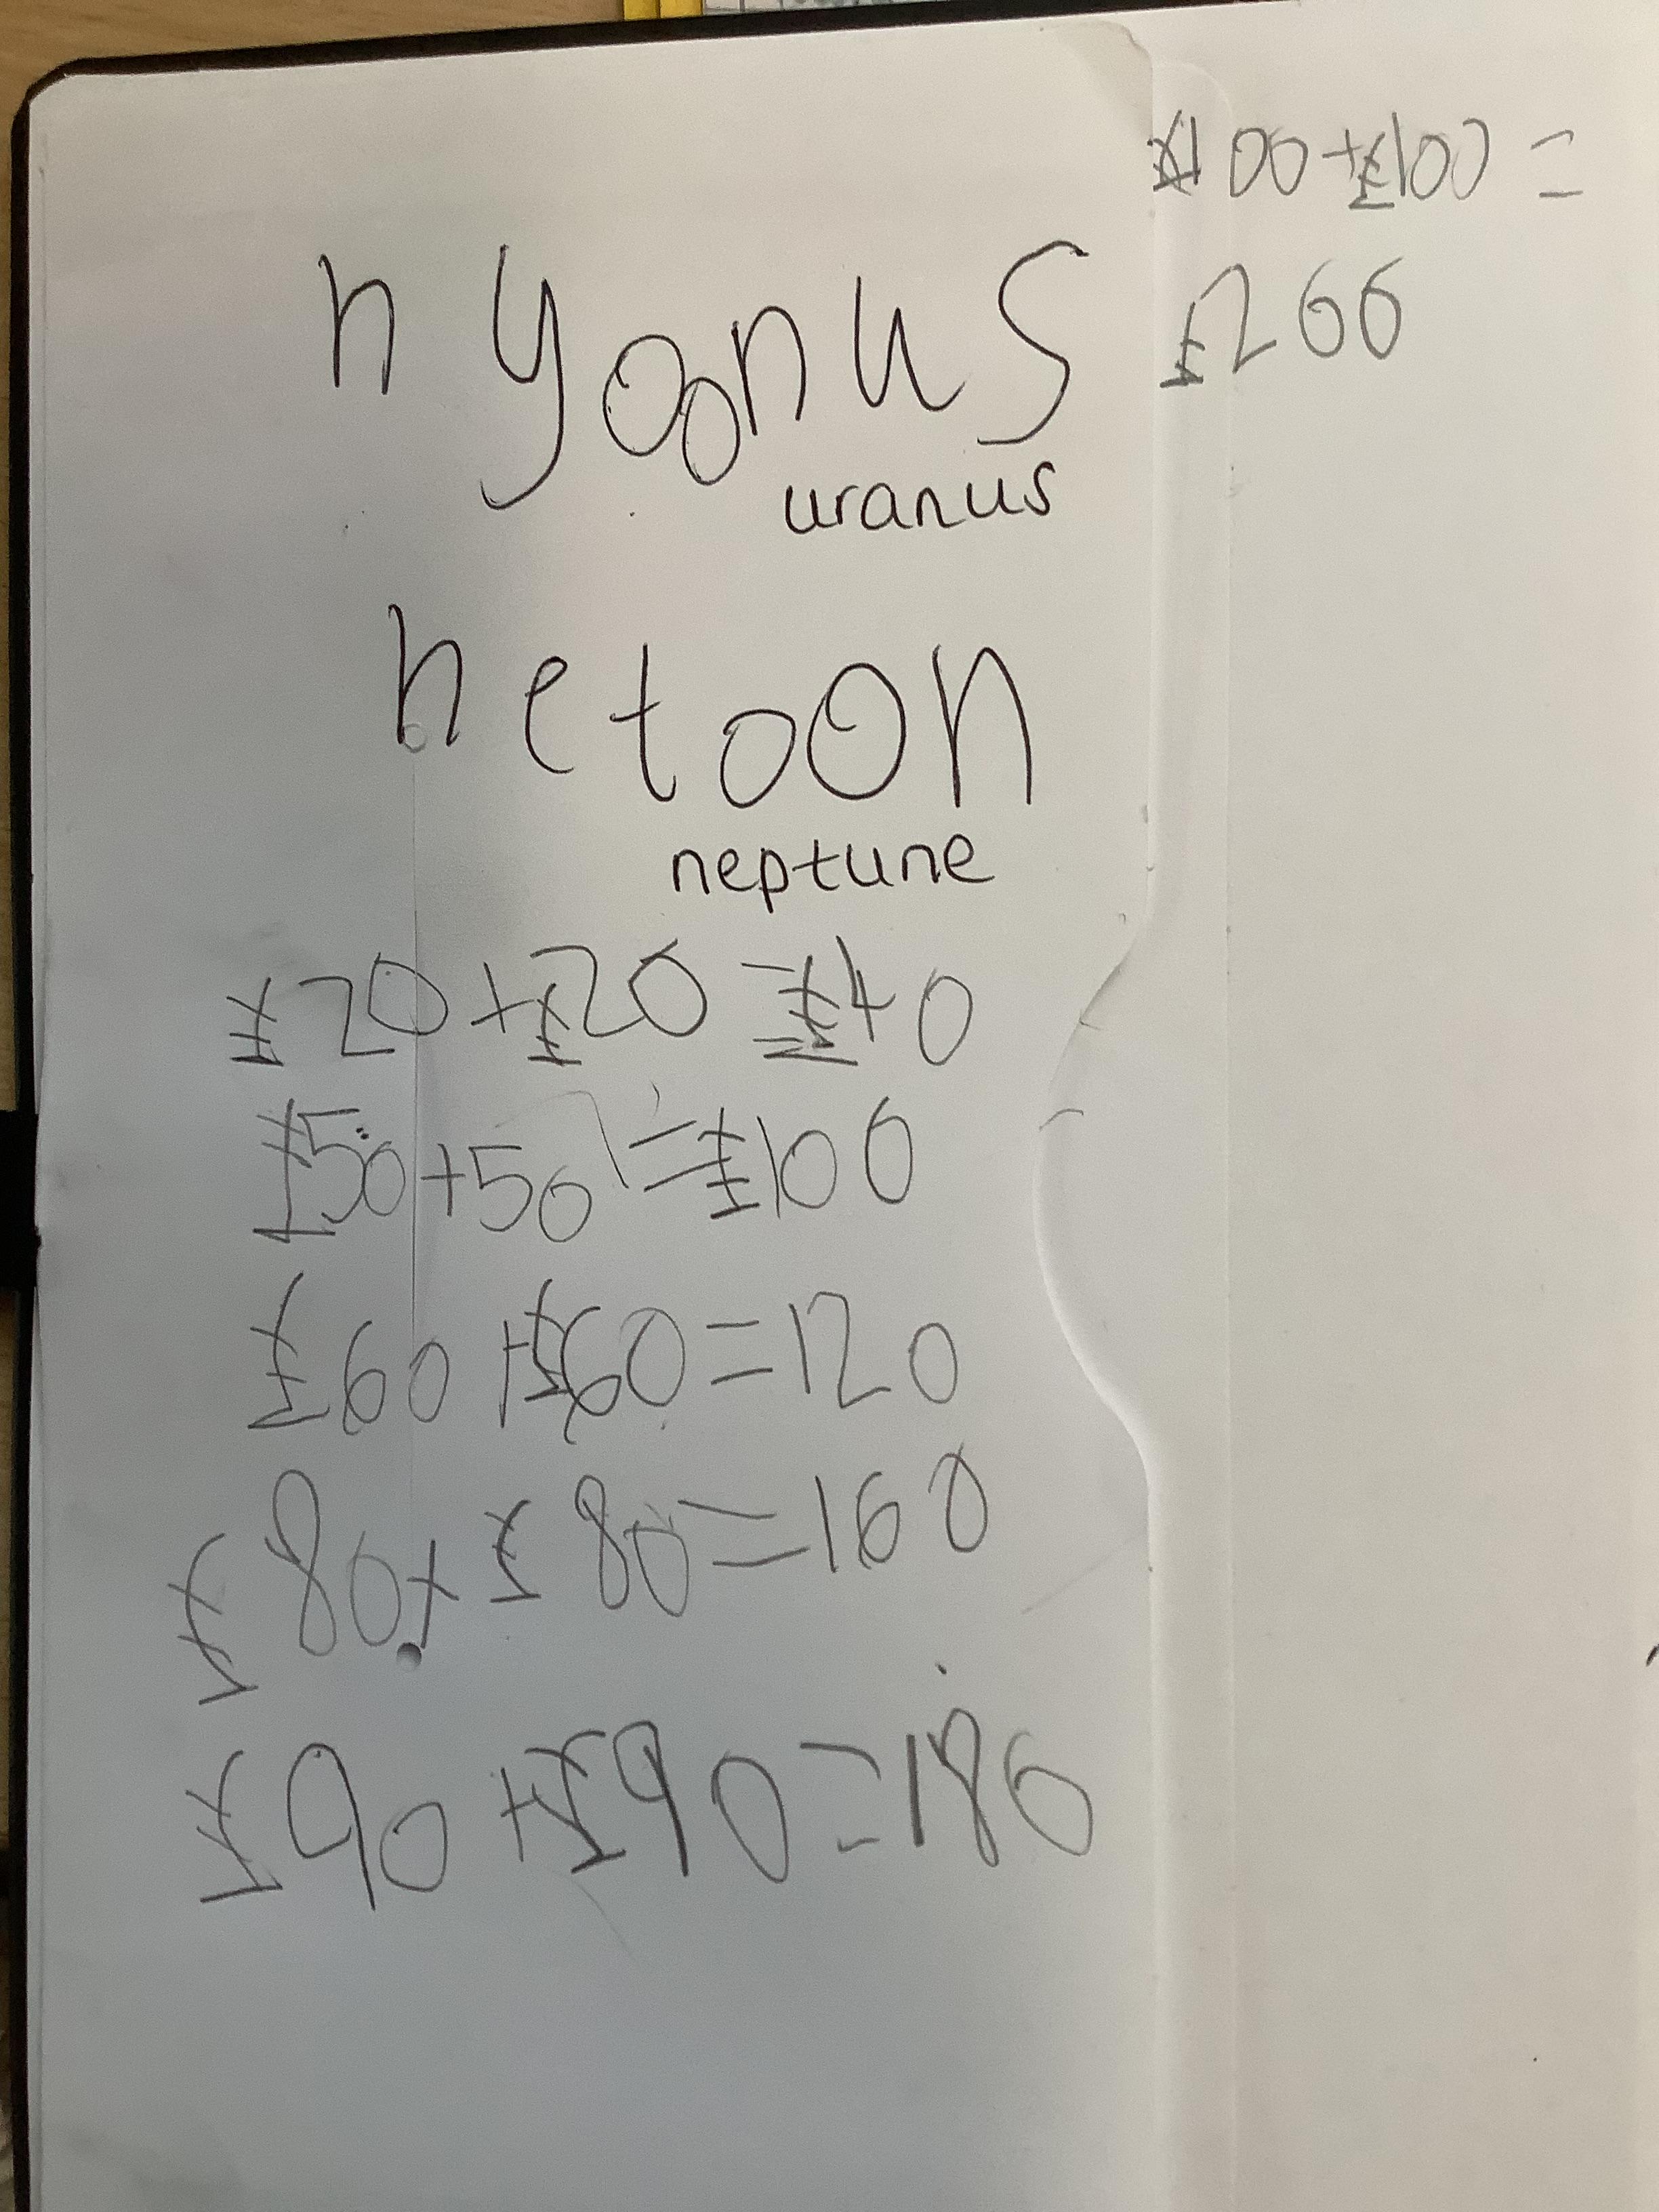 nyoonus
uranus
netoon
neptune
£20+£20=£40
£50+50=£100
£60+£60=120
£80+£80=160
£90+£90=180
£100+£100=
£200